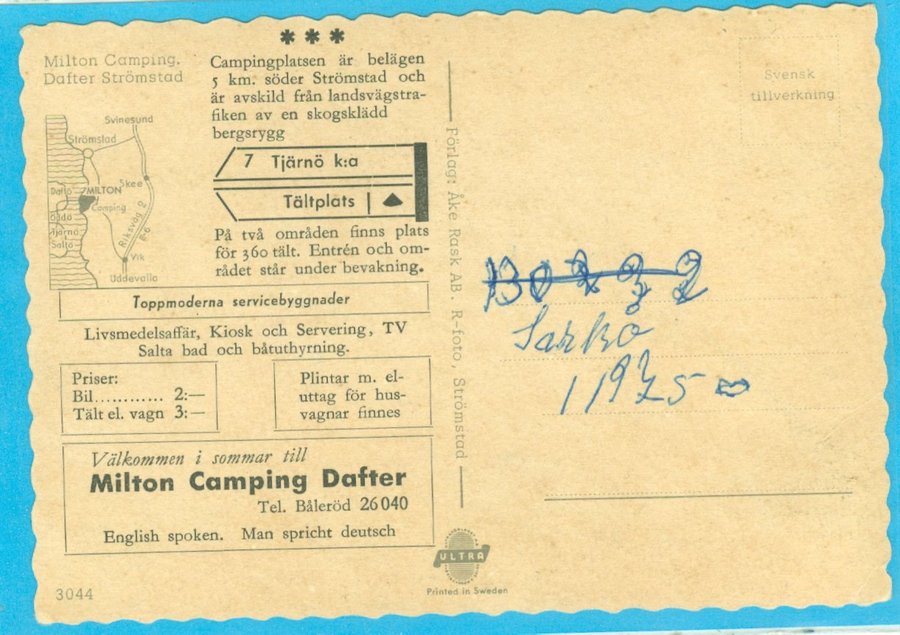 Milton Camping.
Dafter Strömstad
***
Campingplatsen är belägen
5 km. söder Strömstad och
är avskild från landsvägstra-
fiken av en skogsklädd
bergsrygg
Svinesund
Strömstad
Skee
Dafter
MILTON
Camping
Tjärnö
Saltö
Riksväg 2
E-6
Vik
Uddevalla
7 Tjärnö k:a
Tältplats
På två områden finns plats
för 360 tält. Entrén och om-
rådet står under bevakning.
Toppmoderna servicebyggnader
Livsmedelsaffär, Kiosk och Servering, TV
Salta bad och båtuthyrning.
Priser:
Bil............ 2:—
Tält el. vagn 3:—
Plintar m. el-
uttag för hus-
vagnar finnes
Välkommen i sommar till
Milton Camping Dafter
Tel. Båleröd 26040
English spoken. Man spricht deutsch
3044
Förlag: Åke Rask AB. R-foto, Strömstad
ULTRA
Printed in Sweden
Svensk
tillverkning
11975